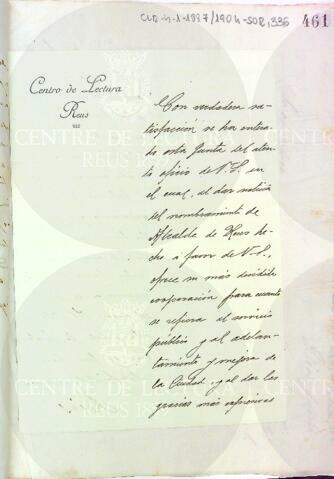 461
Centro de Lectura
Reus
Con verdadera sa-
tisfacción se ha entera-
do esta Junta del aten-
to oficio de V.S. en
el cual, al dar noticia
del nombramiento de
Alcalde de Reus he-
cho á favor de V.S.,
ofrece su más decidida
cooperación para cuanto
se refiera al servicio
público y al adelan-
tamiento y mejora de
la Ciudad, y al dar las
gracias más expresivas
CENTRE DE LECTURA
REUS 1859
CENTRE DE LECTURA